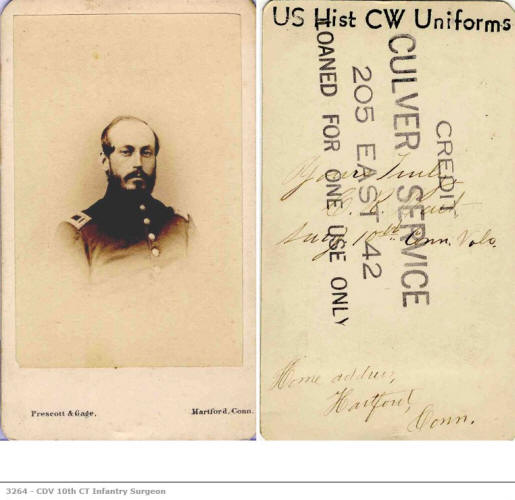 Prescott & Gage,
Hartford, Conn.
US Hist CW Uniforms
CREDIT
CULVER SERVICE
205 EAST 42
LOANED FOR ONE USE ONLY
Yours Truly
Surg. 10th Conn. Vols.
Home address,
Hartford,
Conn.
3264 - CDV 10th CT Infantry Surgeon